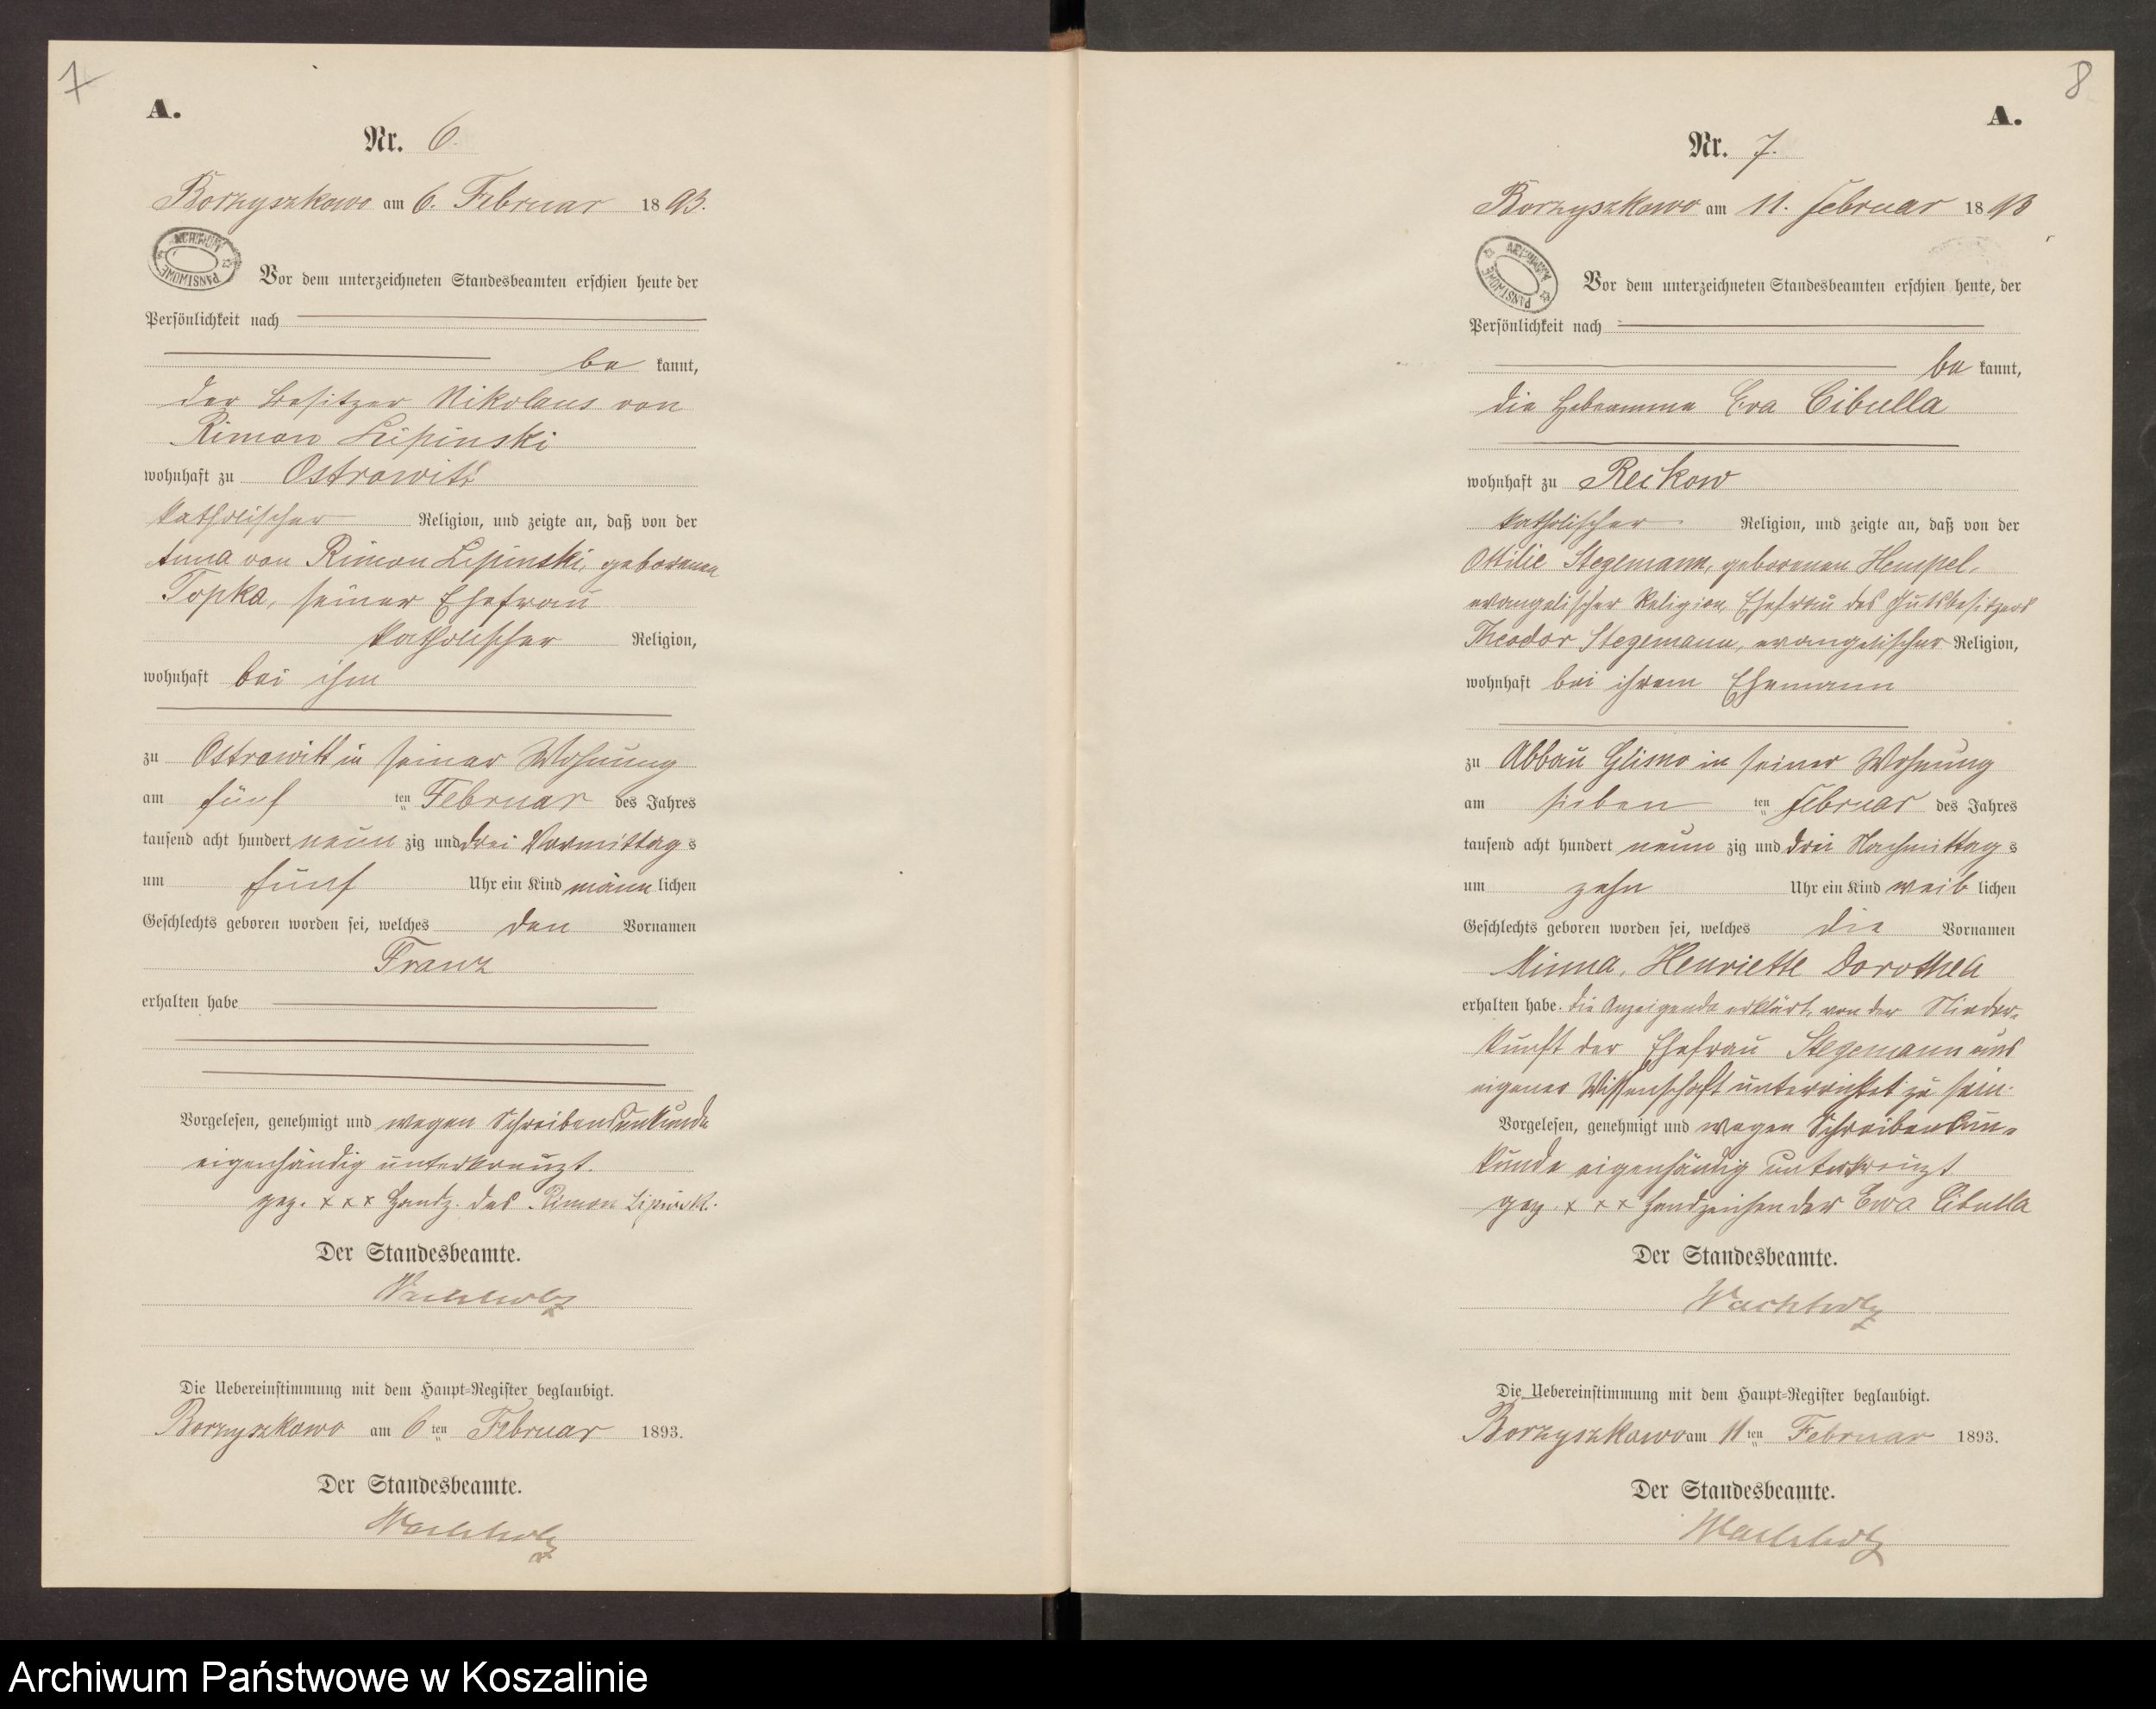 7
A.
Nr. 6.
Borzyszkowo am 6. Februar 1893.
ARCHIWUM PAŃSTWOWE
Vor dem unterzeichneten Standesbeamten erschien heute der
Persönlichkeit nach
be kannt,
der Besitzer Nikolaus von
Rimon Lipinski
wohnhaft zu Ostrowitt
katholischer Religion, und zeigte an, daß von der
Anna von Rimon Lipinski, geborenen
Topka, seiner Ehefrau
katholischer Religion,
wohnhaft bei ihm
zu Ostrowitt in seiner Wohnung
am fünf ten Februar des Jahres
tausend acht hundert neun zig und drei Vormittag s
um fünf Uhr ein Kind männ lichen
Geschlechts geboren worden sei, welches den Vornamen
Franz
erhalten habe
Vorgelesen, genehmigt und wegen Schreibensunkunde
eigenhändig unterkreuzt.
gez. x x x Handz. des Rimon Lipinski.
Der Standesbeamte.
Wachholz
Die Uebereinstimmung mit dem Haupt-Register beglaubigt.
Borzyszkowo am 6 ten Februar 1893.
Der Standesbeamte.
Wachholz
8
A.
Nr. 7.
Borzyszkowo am 11. Februar 1893
ARCHIWUM PAŃSTWOWE
Vor dem unterzeichneten Standesbeamten erschien heute, der
Persönlichkeit nach
be kannt,
die Hebeamme Eva Cibulla
wohnhaft zu Reckow
katholischer Religion, und zeigte an, daß von der
Ottilie Stegemann, geborenen Hempel,
evangelischer Religion, Ehefrau des Gutsbesitzers
Theodor Stegemann, evangelischer Religion,
wohnhaft bei ihrem Ehemann
zu Abbau Glisno in seiner Wohnung
am sieben ten Februar des Jahres
tausend acht hundert neun zig und drei Nachmittag s
um zehn Uhr ein Kind weib lichen
Geschlechts geboren worden sei, welches die Vornamen
Minna, Henriette Dorothea
erhalten habe. Die Anzeigende erklärt, von der Nieder-
kunft der Ehefrau Stegemann aus
eigener Wissenschaft unterrichtet zu sein.
Vorgelesen, genehmigt und wegen Schreibensun-
kunde eigenhändig unterkreuzt
gez. x x x Handzeichen der Ewa Cibulla
Der Standesbeamte.
Wachholz
Die Uebereinstimmung mit dem Haupt-Register beglaubigt.
Borzyszkowo am 11 ten Februar 1893.
Der Standesbeamte.
Wachholz
Archiwum Państwowe w Koszalinie